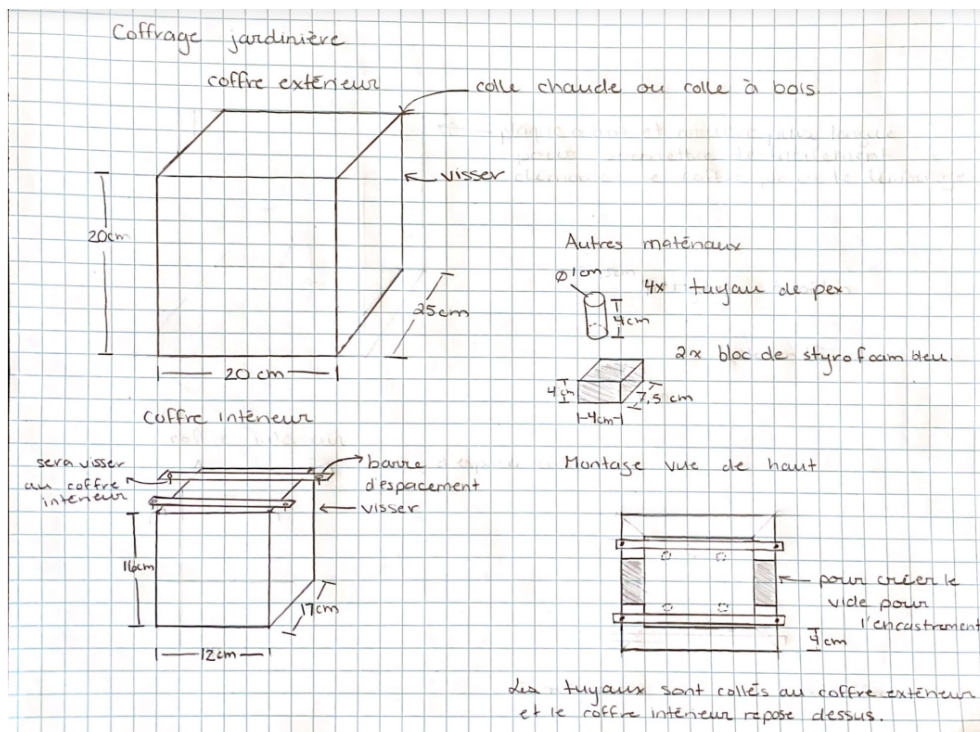 Coffrage jardinière
coffre extérieur
colle chaude ou colle à bois.
visser
20cm
25cm
20 cm
Autres matériaux
Ø1cm
4x tuyau de pex
4cm
2x bloc de styrofoam bleu.
4cm
4cm
7,5 cm
coffre intérieur
sera visser
au coffre
intérieur
barre
d'espacement
visser
16cm
17cm
12cm
Montage vue de haut
pour créer le
vide pour
l'encastrement
4cm
Les tuyaux sont collés au coffre extérieur
et le coffre intérieur repose dessus.